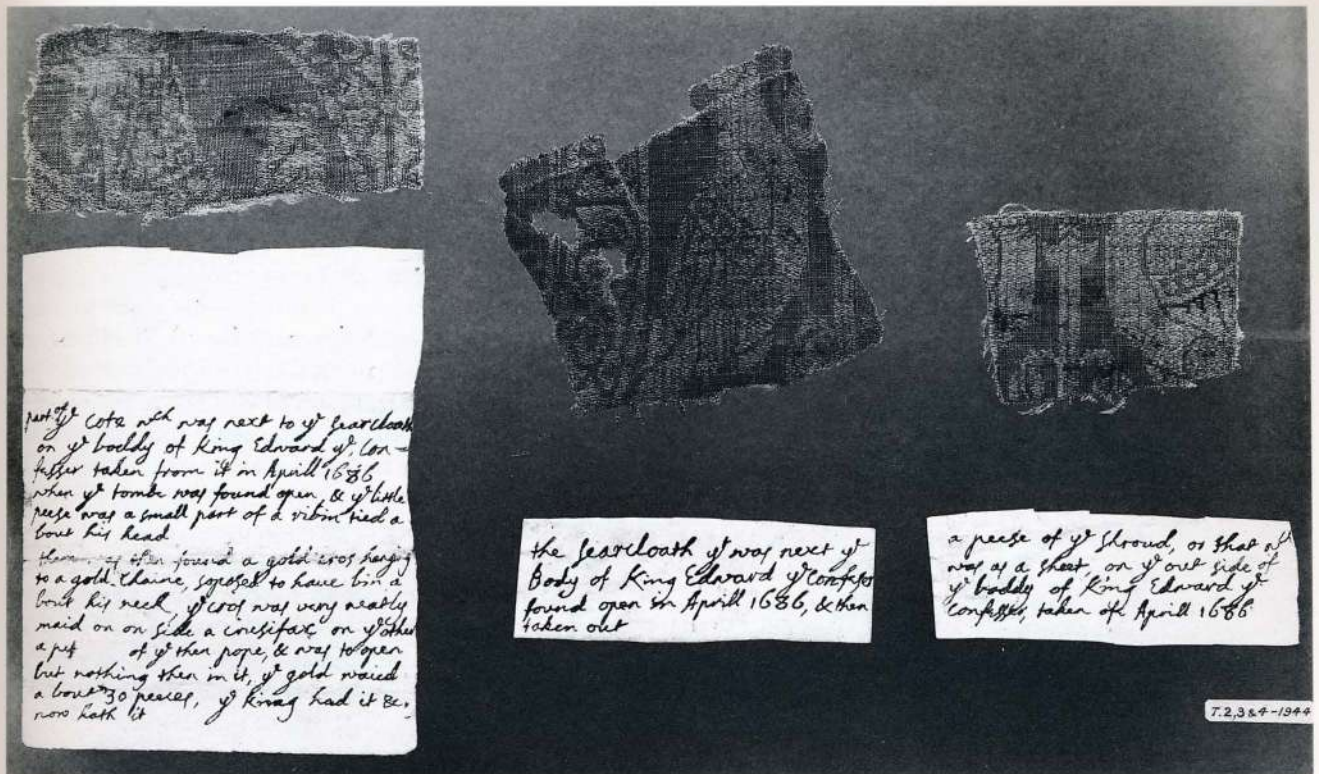 part of yᵉ Cote wch was next to yᵉ searcloath
on yᵉ boddy of King Edward yᵉ Con=
fesser taken from it in Aprill 1686
when yᵉ tombe was found open, & yᵉ little
peese was a small part of a ribin tied a
bout his head
there was then found a gold cros hanging
to a gold Chaine, soposed to have bin a
bout his neck, yᵉ cros was very neatly
maid on on side a crusifax, on yᵉ other
a of yᵉ then pope, & was to open
but nothing then in it, yᵉ gold waied
a bout 30 peeces, yᵉ king had it &
now hath it
the searcloath yᵗ was next yᵉ
Body of King Edward yᵉ Confesor
found open in Aprill 1686, & then
taken out
a peese of yᵉ shroud, or that wch
was as a sheet, on yᵉ out side of
yᵉ boddy of King Edward yᵉ
Confesser, taken of Aprill 1686
T.2,3&4-1944